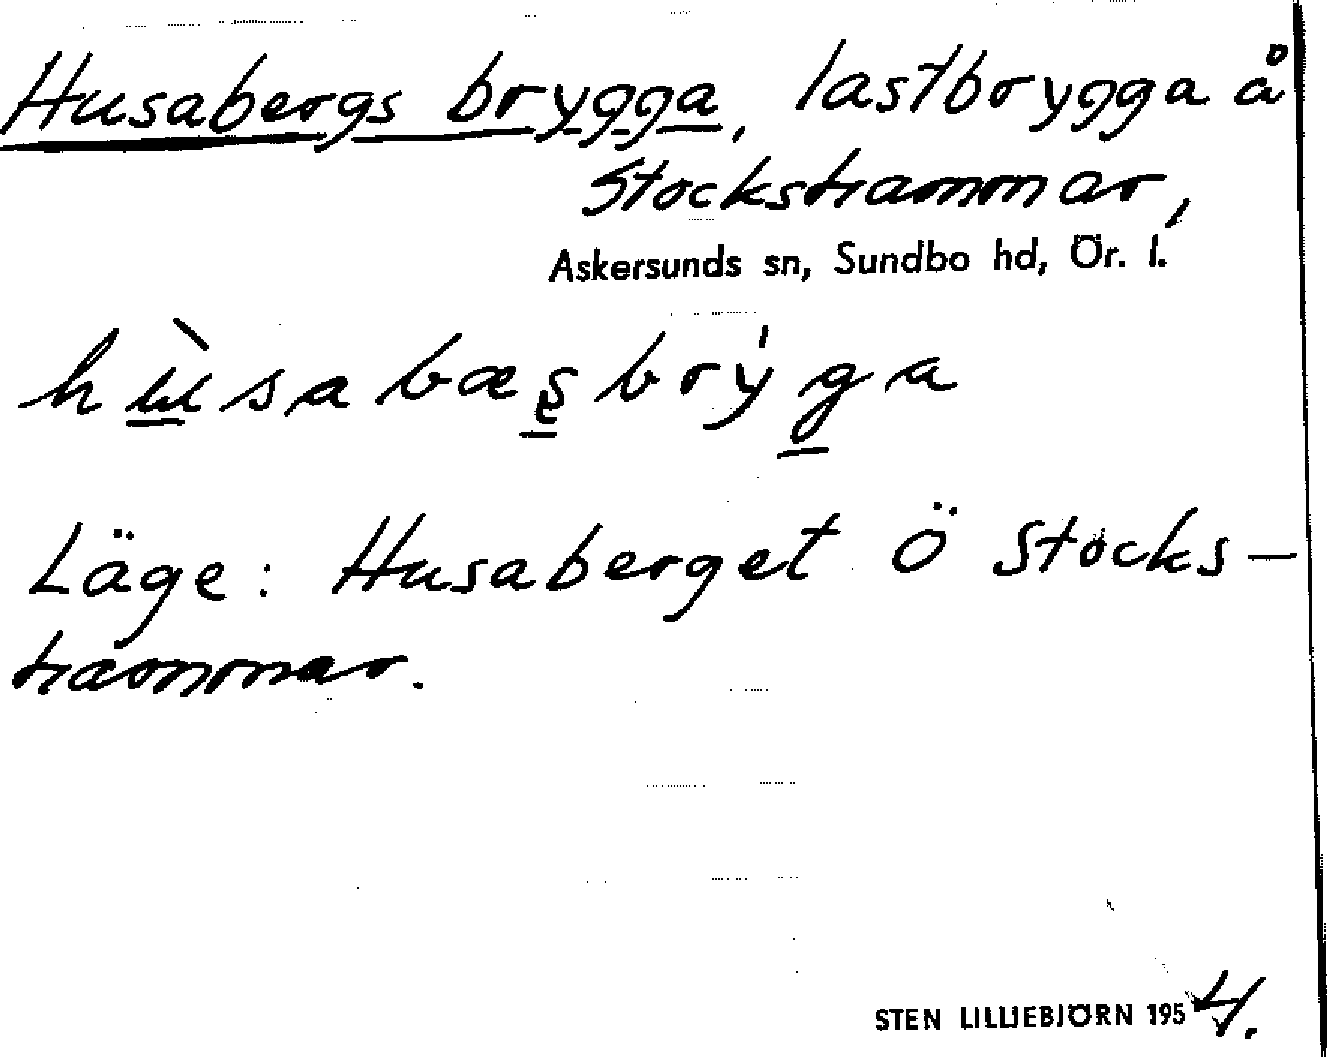 Husabergs brygga, lastbrygga å
Stockshammar,
Askersunds sn, Sundbo hd, Ör. l.
Läge: Husaberget Ö Stocks-
hammar.
STEN LILLJEBJÖRN 1954.